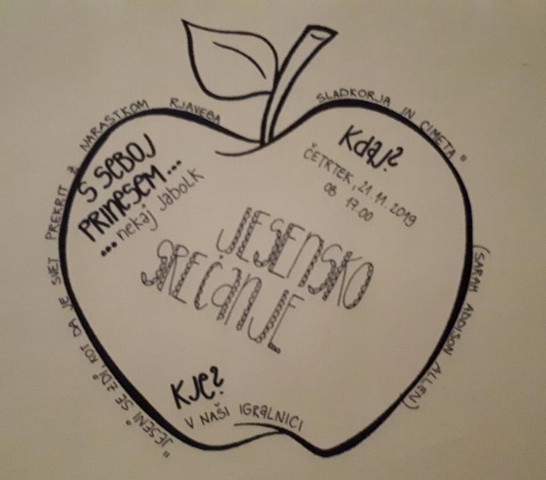 "JESENI SE ZDI, KOT DA JE SVET PREKRIT Z NARASTKOM RJAVEGA SLADKORJA IN CIMETA"
(SARAH ADDISON ALLEN)
S SEBOJ
PRINESEM...
...nekaj jabolk
Kdaj?
ČETRTEK, 21.11.2019
OB 17.00
JESENSKO
SREČANJE
KJE?
V NAŠI IGRALNICI